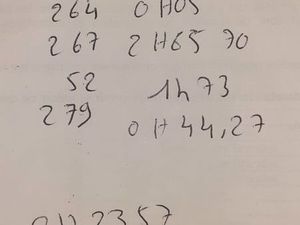 264 0H05
267 2H65 70
52 1h73
279 0H44,27
0H2357